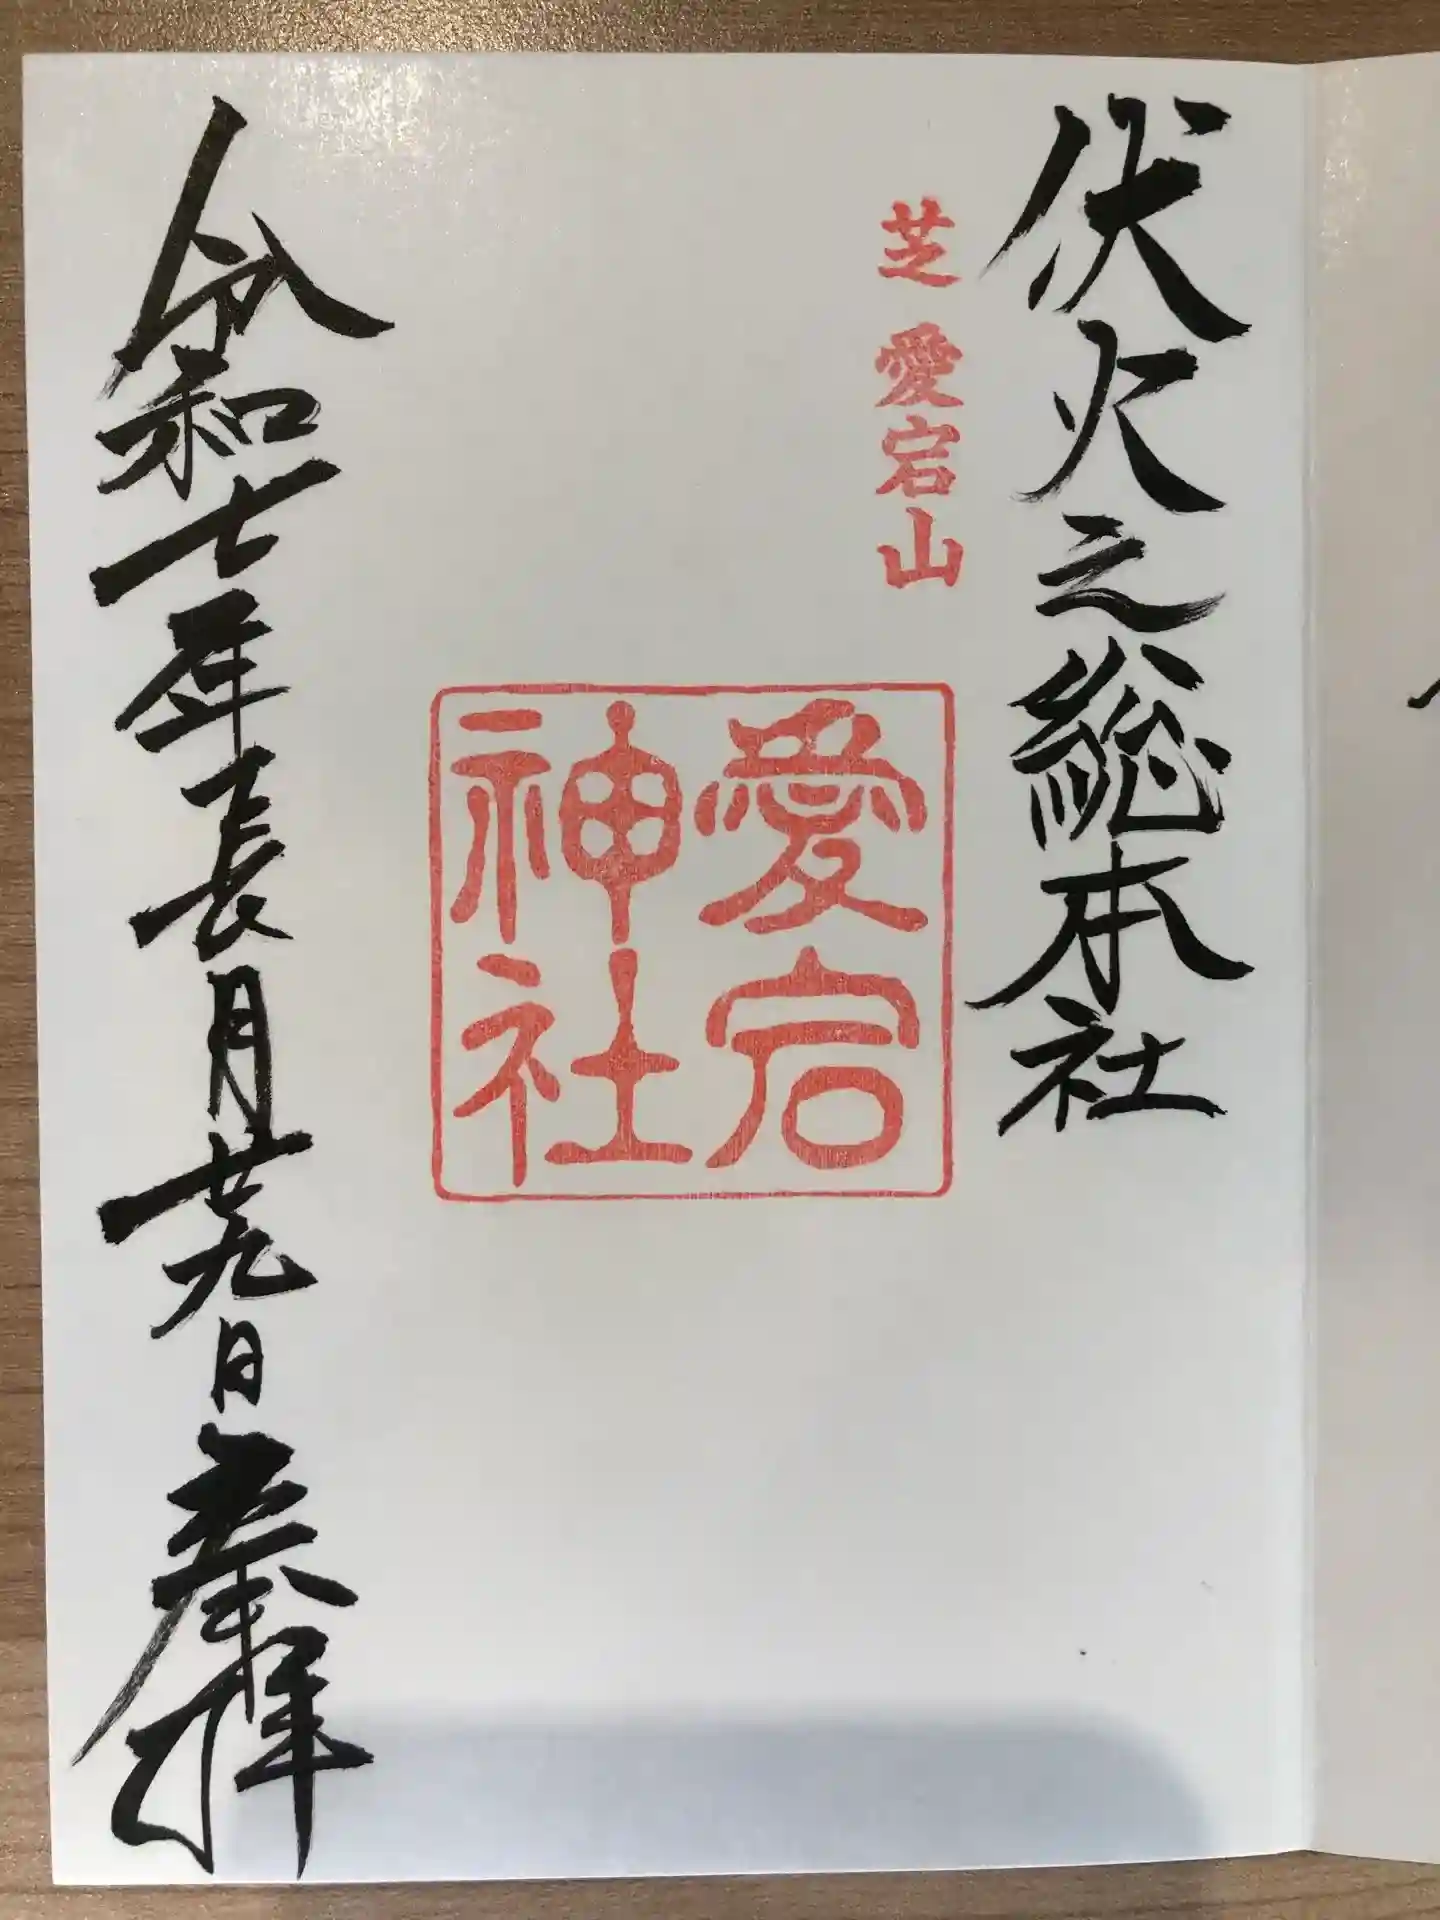 伏火之総本社
芝 愛宕山
愛宕
神社
令和七年長月廿九日参拝